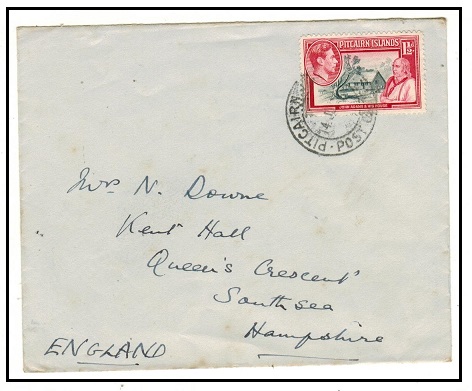 PITCAIRN ISLANDS
1½D
JOHN ADAMS & HIS HOUSE
PITCAIRN · POST
14 J
Mrs N. Downe
Kent Hall
Queen's Crescent
Southsea
Hampshire
ENGLAND